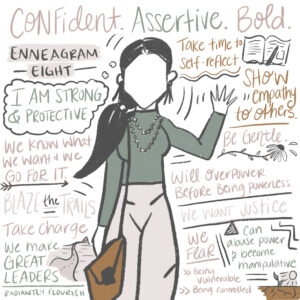 CONFIDENT. ASSERTIVE. BOLD.
ENNEAGRAM
EIGHT
I AM STRONG
& PROTECTIVE
We know what
we want & we
GO FOR IT.
BLAZE the TRAILS
Take Charge
We make
GREAT
LEADERS
RADIANTLY FLOURISH
Take time to
self-reflect
SHOW
empathy
to others.
Be Gentle
Will overpower
Before being powerless
WE WANT JUSTICE
WE
FEAR
>> Being
vulnerable
>> Being controlled
Can
abuse power
& become
manipulative